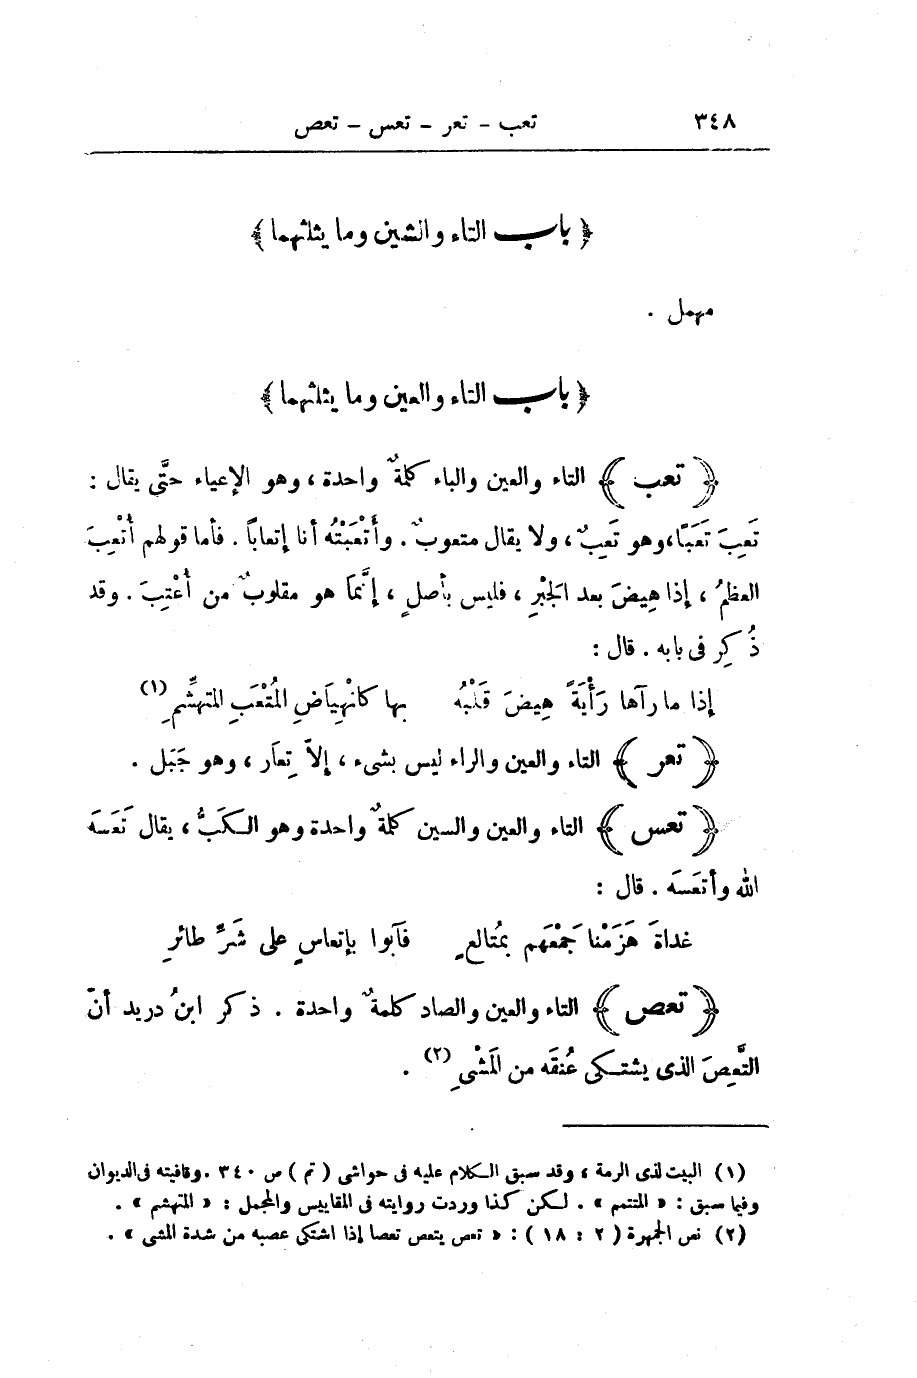 ٣٤٨ تعب – تعر – تعس – تعص
﴿ باب التاء والشين وما يثلثهما ﴾
مهمل .
﴿ باب التاء والعين وما يثلثهما ﴾
﴿ تعب ﴾ التاء والعين والباء كلمةٌ واحدة ، وهو الإعياء حتَّى يقال :
تَعِبَ تَعَبًا، وهو تَعِبٌ ، ولا يقال متعوبٌ . وأَتْعَبْتُه أنا إتعاباً . فأما قولهم أُتْعِبَ
العظمُ ، إذا هِيضَ بعد الجَبْرِ ، فليس بأصلٍ ، إنَّما هو مقلوبٌ من أُعْتِبَ . وقد
ذُكِر فى بابه . قال :
إذا ما رآها رَأْيَةً هِيضَ قَلْبُه بها كانْهِيَاضِ المُتْعَبِ المتهشِّمِ (١)
﴿ تعر ﴾ التاء والعين والراء ليس بشىء ، إلاّ تِعَار ، وهو جَبَل .
﴿ تعس ﴾ التاء والعين والسين كلمةٌ واحدة وهو الكَبُّ ، يقال تَعَسَه
الله وأتعَسَه . قال :
غداةَ هَزَمْنا جَمْعَهم بمُتالعٍ فَآبوا بإتعاسٍ على شَرِّ طائرِ
﴿ تعص ﴾ التاء والعين والصاد كلمةٌ واحدة . ذكر ابنُ دريد أنّ
التَّعِصَ الذى يشتكى عُنقَه من المَشْىِ (٢) .
(١) البيت لذى الرمة ، وقد سبق الكلام عليه فى حواشى ( تم ) ص ٣٤٠ . وقافيته فى الديوان
وفيما سبق : « المتتمم » . لكن كذا وردت روايته فى المقاييس والمجمل : « المتهشم » .
(٢) نص الجمهرة ( ٢ : ١٨ ) : « تعص يتعص تعصا إذا اشتكى عصبه من شدة المشى » .